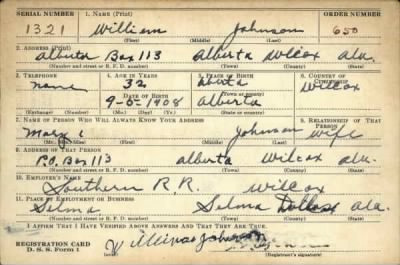 SERIAL NUMBER 1. NAME (Print) ORDER NUMBER
1321 William Johnson 650
(First) (Middle) (Last)
2. ADDRESS (Print)
Alberta Box 113 Alberta Wilcox Ala.
(Number and street or R. F. D. number) (Town) (County) (State)
3. TELEPHONE 4. AGE IN YEARS 5. PLACE OF BIRTH 6. COUNTRY OF CITIZENSHIP
none 32 Wilcox
DATE OF BIRTH (Town or county)
9-5-1908 Alberta
(Exchange) (Number) (Mo.) (Day) (Yr.) (State or country)
7. NAME OF PERSON WHO WILL ALWAYS KNOW YOUR ADDRESS 8. RELATIONSHIP OF THAT PERSON
Mary L Johnson wife
(Mr., Mrs., Miss) (First) (Middle) (Last)
9. ADDRESS OF THAT PERSON
P.O. Box 113 Alberta Wilcox Ala.
(Number and street or R. F. D. number) (Town) (County) (State)
10. EMPLOYER'S NAME
Southern R.R. Wilcox
11. PLACE OF EMPLOYMENT OR BUSINESS
Selma Selma Dallas Ala.
(Number and street or R. F. D. number) (Town) (County) (State)
I AFFIRM THAT I HAVE VERIFIED ABOVE ANSWERS AND THAT THEY ARE TRUE.
REGISTRATION CARD
D. S. S. Form 1
(Registrant's signature)